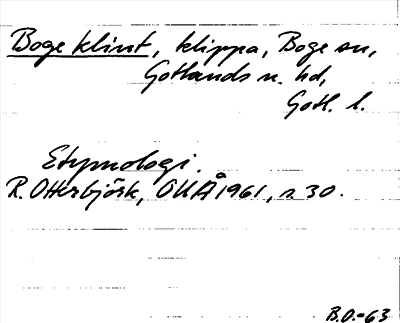 Boge klint, klippa, Boge sn,
Gotlands n. hd,
Gotl. l.
Etymologi.
R. Otterbjörk, OUÅ 1961, s. 30.
B.O.-63